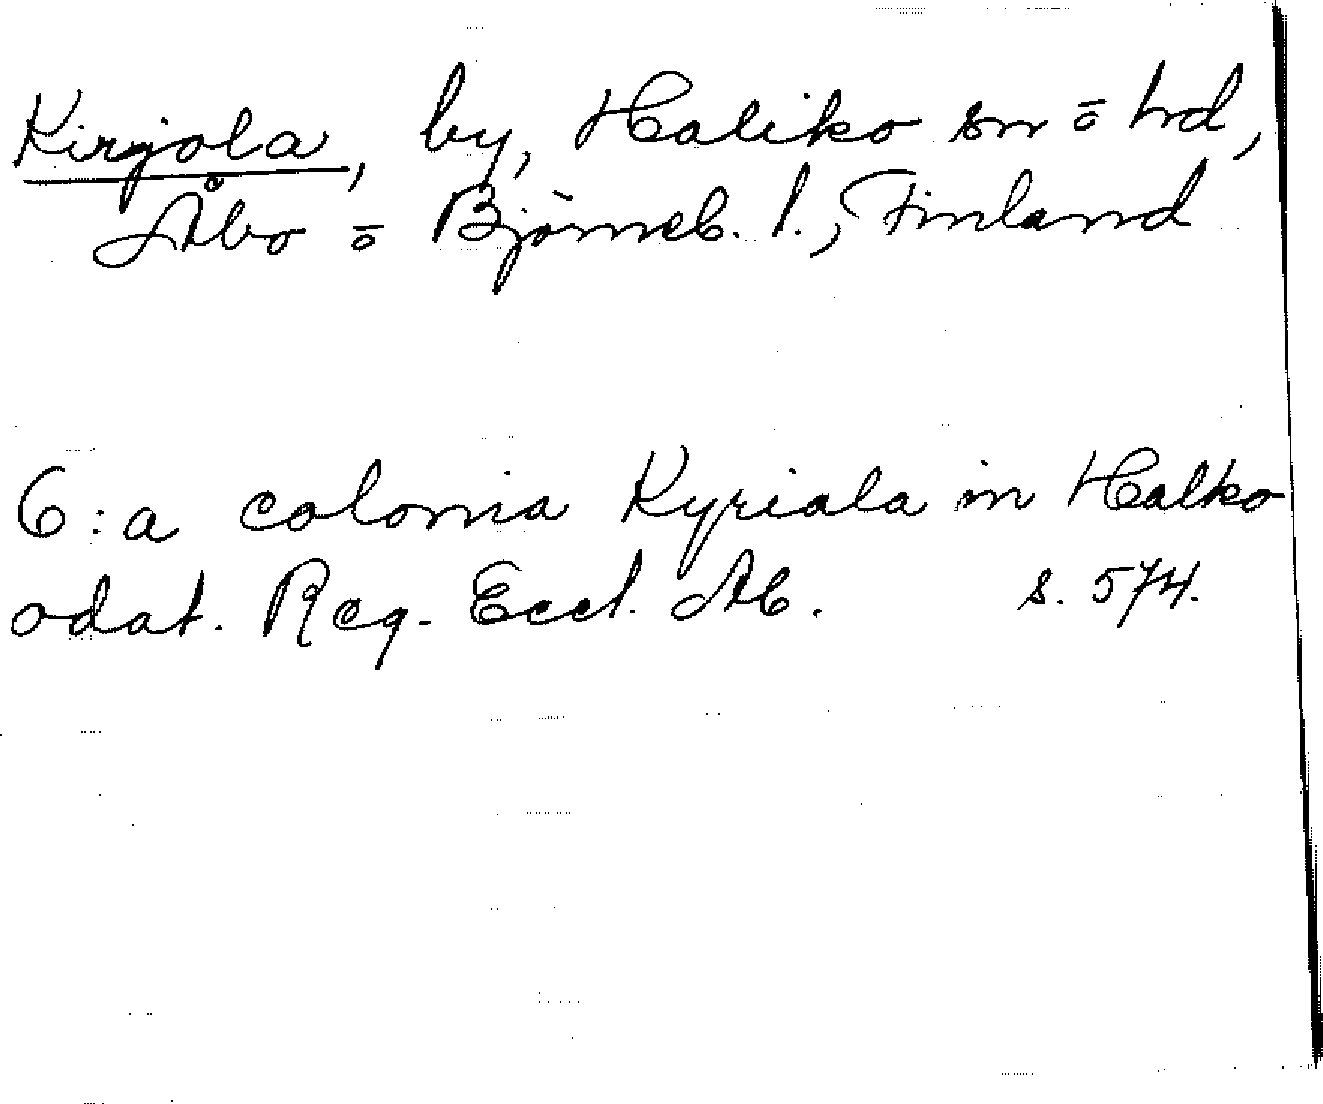 Kirjola, by, Haliko sn ō hd,
Åbo ō Björneb. l., Finland
6:a colonia Kyriala in Halko
odat. Reg. Eccl. Ab. s. 574.